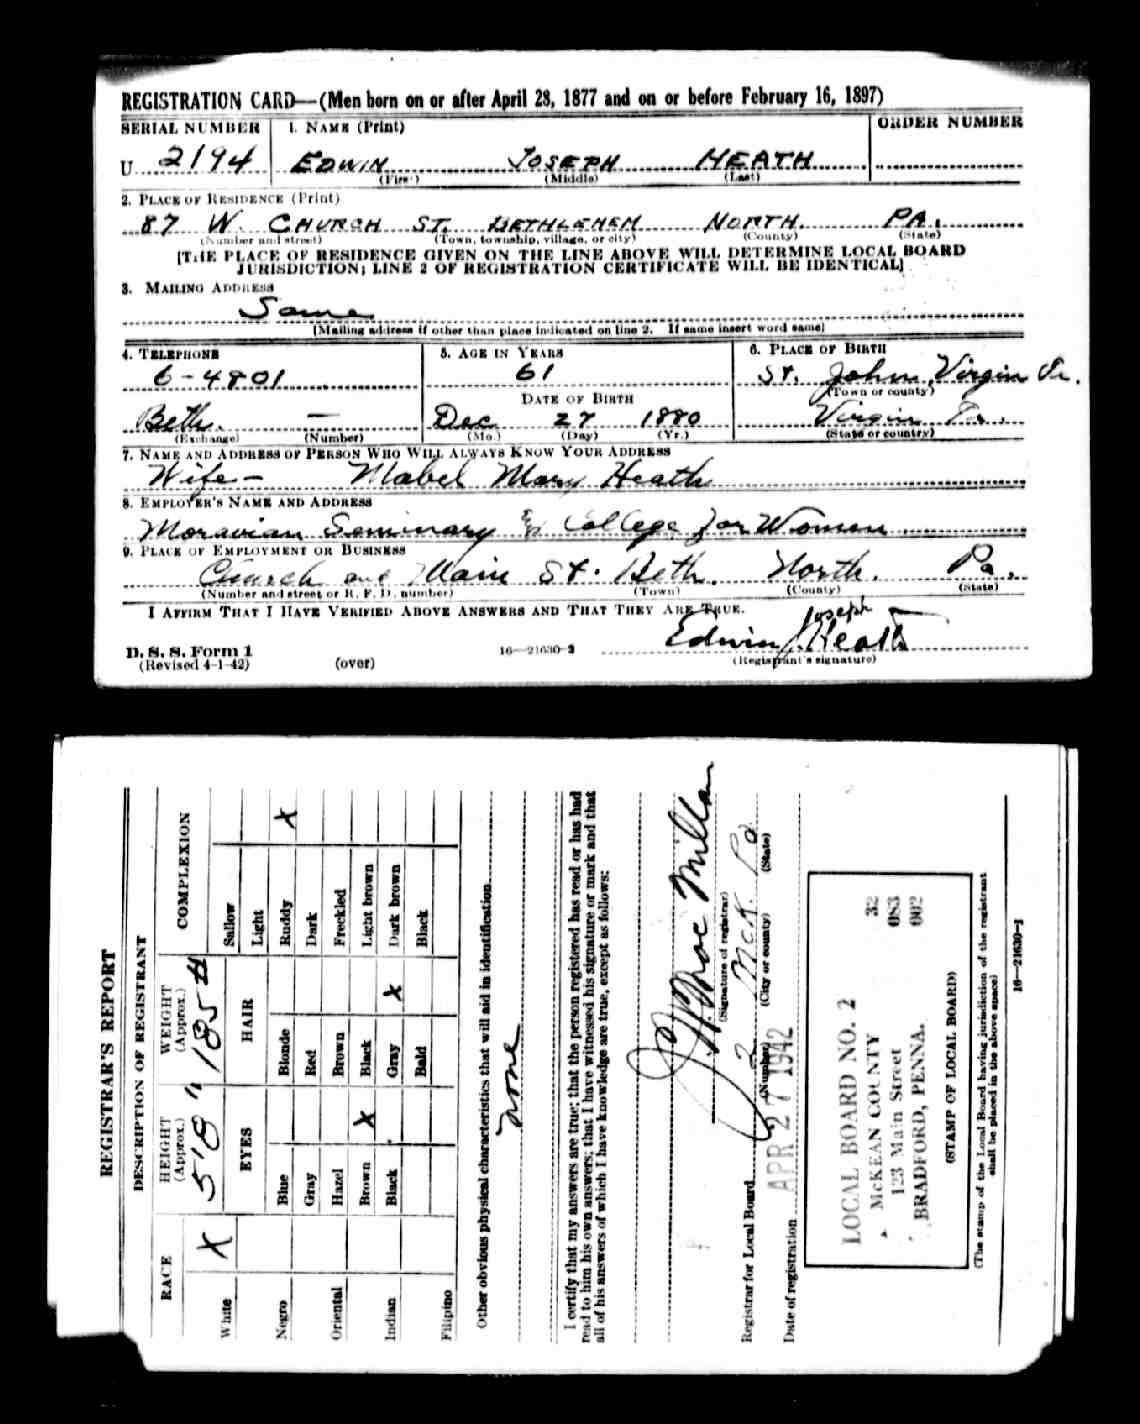 REGISTRATION CARD—(Men born on or after April 28, 1877 and on or before February 16, 1897)
SERIAL NUMBER 1. NAME (Print) ORDER NUMBER
U 2194 EDWIN JOSEPH HEATH
(First) (Middle) (Last)
2. PLACE OF RESIDENCE (Print)
87 W. CHURCH ST. BETHLEHEM NORTH. PA.
(Number and street) (Town, township, village, or city) (County) (State)
[THE PLACE OF RESIDENCE GIVEN ON THE LINE ABOVE WILL DETERMINE LOCAL BOARD
JURISDICTION; LINE 2 OF REGISTRATION CERTIFICATE WILL BE IDENTICAL]
3. MAILING ADDRESS
Same
[Mailing address if other than place indicated on line 2. If same insert word same]
4. TELEPHONE 5. AGE IN YEARS 6. PLACE OF BIRTH
6-4801 61 St. John, Virgin Is.
DATE OF BIRTH (Town or county)
Beth. — Dec 27 1880 Virgin Is.
(Exchange) (Number) (Mo.) (Day) (Yr.) (State or country)
7. NAME AND ADDRESS OF PERSON WHO WILL ALWAYS KNOW YOUR ADDRESS
Wife - Mabel Mary Heath
8. EMPLOYER'S NAME AND ADDRESS
Moravian Seminary & College for Women
9. PLACE OF EMPLOYMENT OR BUSINESS
Church and Main St. Beth. North. Pa.
(Number and street or R. F. D. number) (Town) (County) (State)
I AFFIRM THAT I HAVE VERIFIED ABOVE ANSWERS AND THAT THEY ARE TRUE.
Edwin Joseph Heath
D. S. S. Form 1
(Revised 4-1-42) (over) 16—21630-2 (Registrant's signature)
REGISTRAR'S REPORT
DESCRIPTION OF REGISTRANT
RACE HEIGHT (Approx.) WEIGHT (Approx.) COMPLEXION
White X 5'8" 185 # Sallow
EYES HAIR Light
Negro Blue Blonde Ruddy X
Gray Red Dark
Oriental Hazel Brown Freckled
Brown X Black Light brown
Indian Black Gray X Dark brown
Bald Black
Filipino
Other obvious physical characteristics that will aid in identification
none
I certify that my answers are true; that the person registered has read or has had
read to him his own answers; that I have witnessed his signature or mark and that
all of his answers of which I have knowledge are true, except as follows:
(Signature of registrar)
Registrar for Local Board 2 McK. Pa
(Number) (City or county) (State)
Date of registration APR 27 1942
LOCAL BOARD NO. 2 32
McKEAN COUNTY 083
123 Main Street 002
BRADFORD, PENNA.
(STAMP OF LOCAL BOARD)
(The stamp of the Local Board having jurisdiction of the registrant
shall be placed in the above space)
16—21630-2